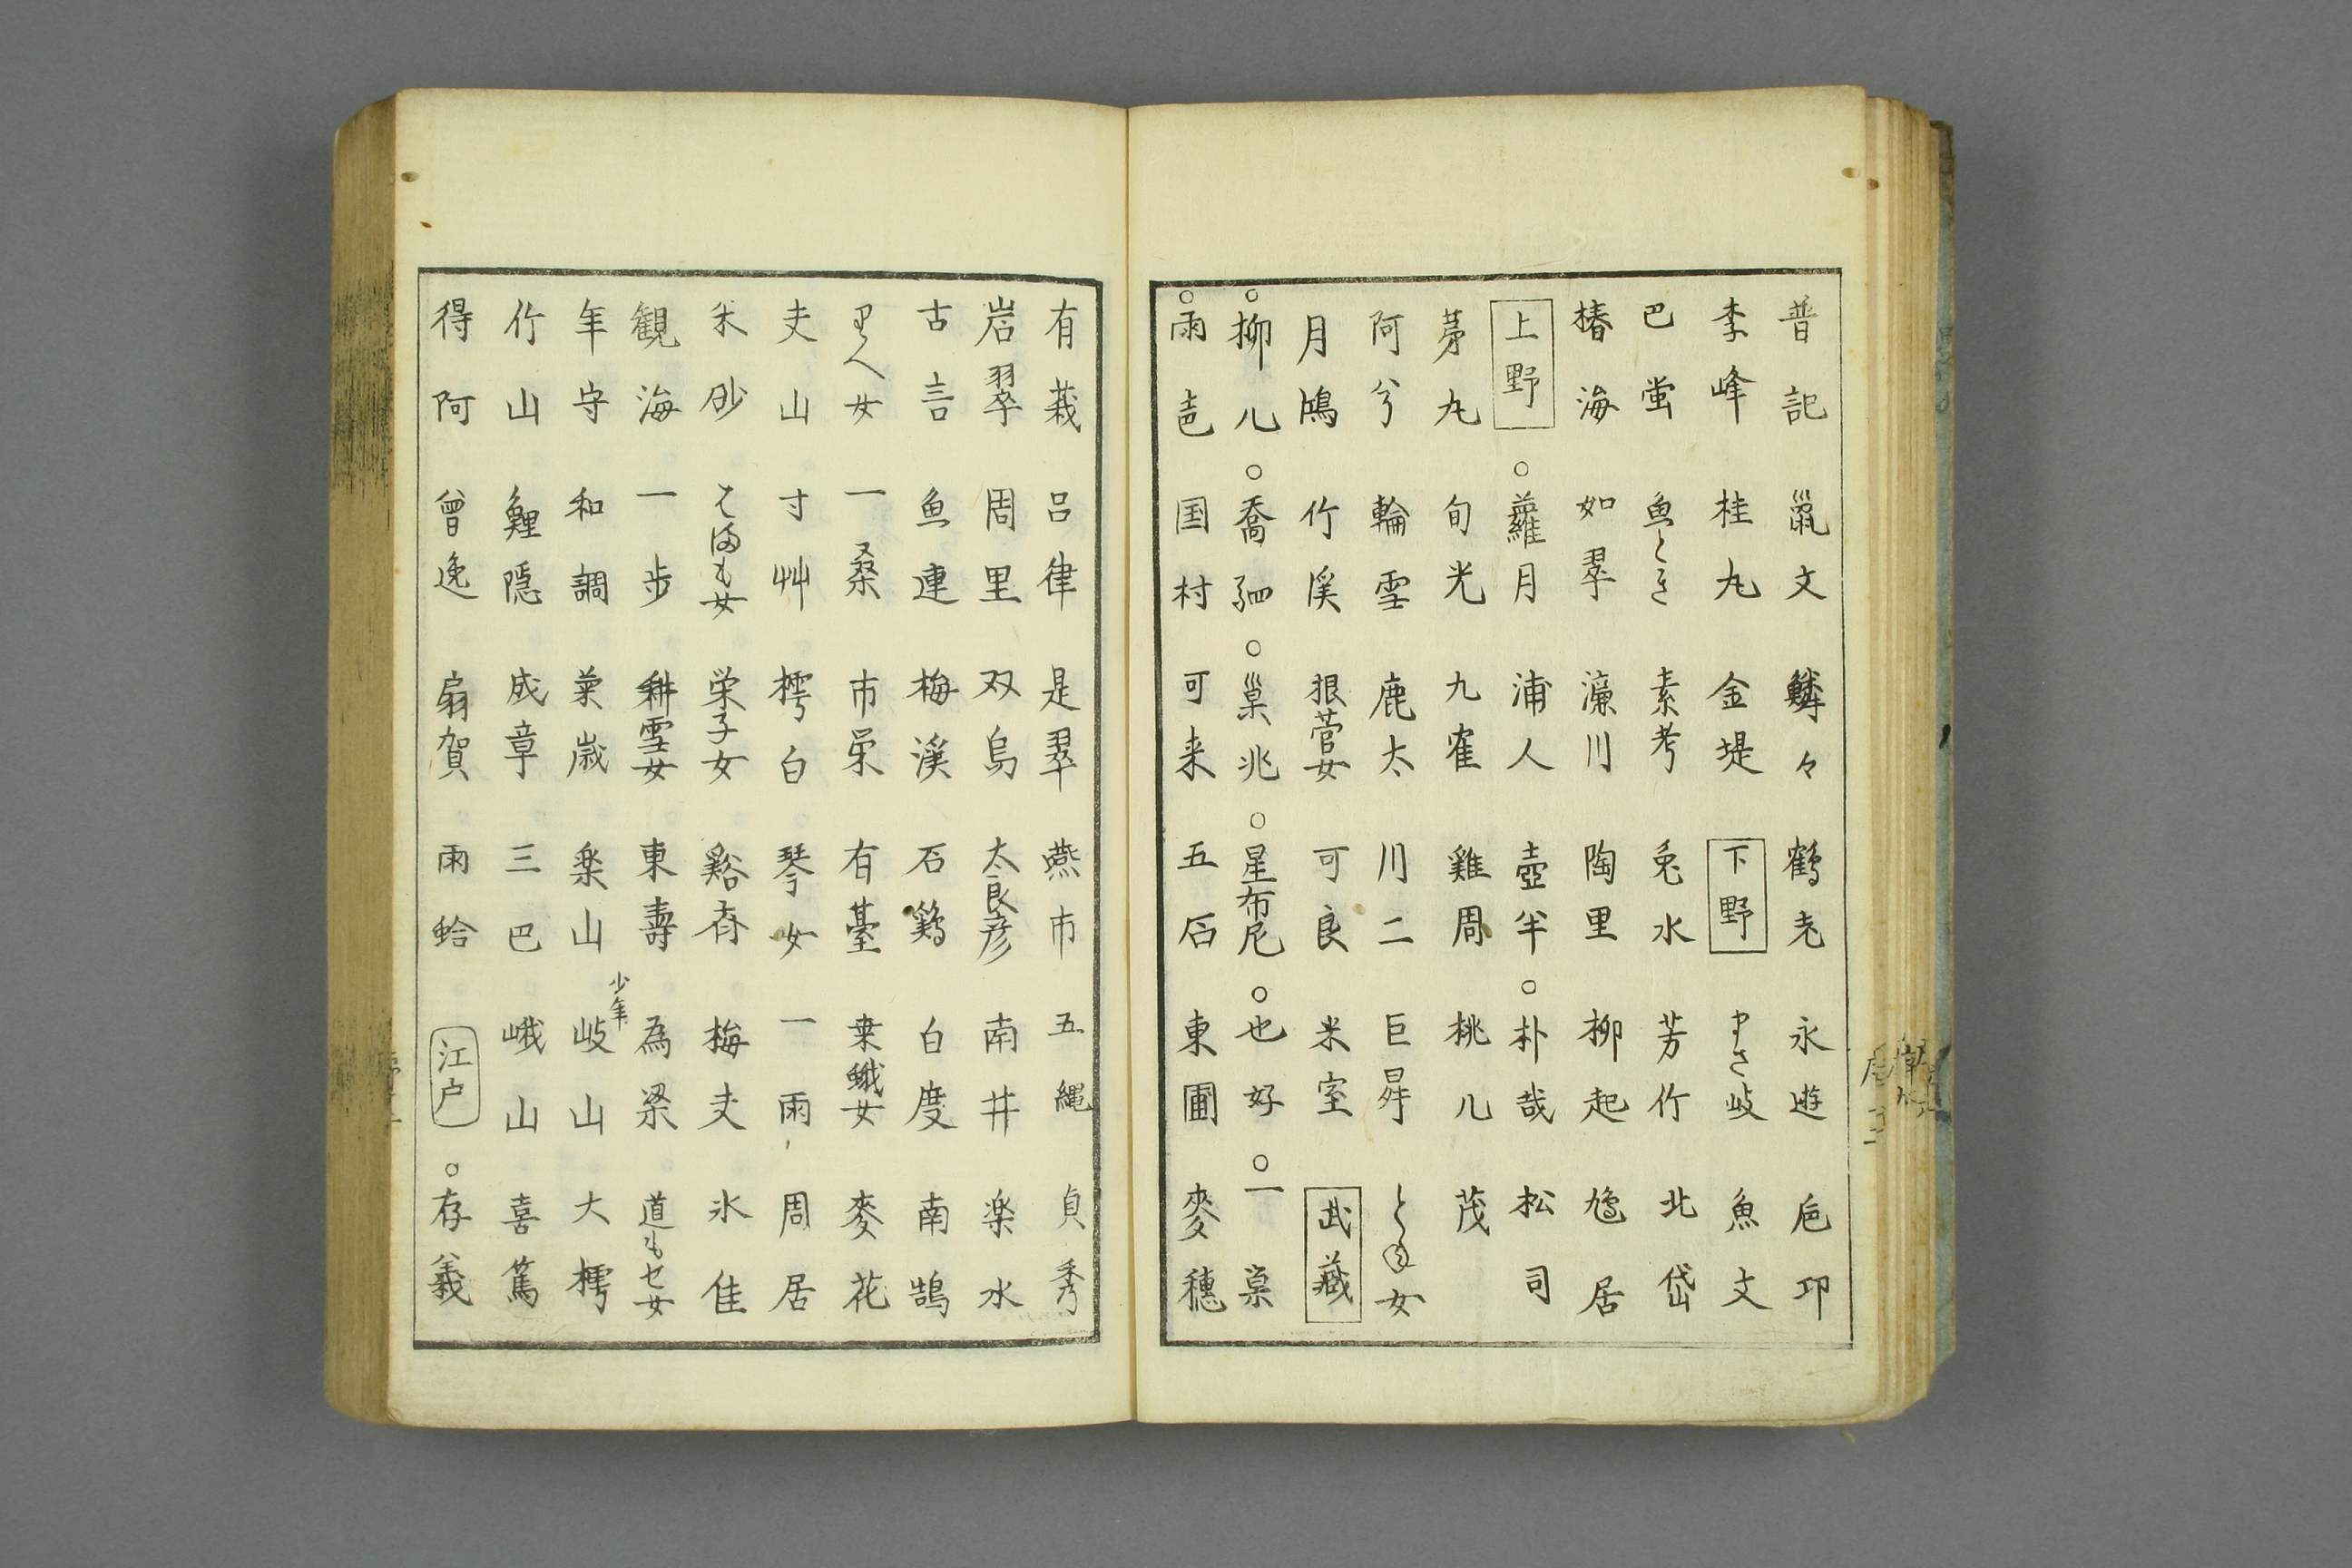 普記 巣文 鱗々 鶴老 永遊 巵卭
李峰 桂丸 金堤 下野 やさ岐 魚文
巴蛍 魚とき 素考 兎水 芳竹 北岱
椿海 如翠 濂川 陶里 柳起 鳩居
上野 ○蘿月 浦人 壺半 ○朴哉 松司
茅丸 旬光 九隺 雞周 桃儿 茂
阿兮 輪雪 鹿太 川二 巨舜 と女
月鴻 竹渓 狠菅女 可良 米室 武藏
○柳儿 ○喬 ○巣兆 ○星布尼 ○也好 ○一巣
○雨邑 国村 可来 五石 東圃 麥穗
有莪 呂律 是翠 燕市 五縄 貞秀
岩翠 周里 双烏 太良彦 南井 楽水
古言 魚連 梅渓 石鶏 白度 南鵠
りへ女 一桑 市栄 有䑓 桒蛾女 麥花
夫山 寸艸 樗白 琴女 一雨 周居
米砂 はまも女 栄子女 谿斎 梅夫 氷佳
観海 一歩 耕雪女 東壽 為梁 道もせ女
年守 和調 菜嵗 楽山 少年 岐山 大樗
竹山 鯉隠 成章 三巴 峨山 喜篤
得阿 曽逸 扇賀 雨蛤 江戸 ○存義